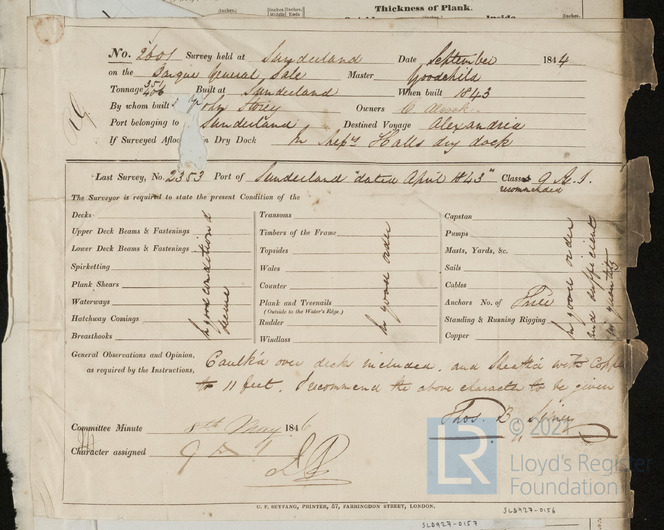 Thickness of Plank.
Inside
No. 2601 Survey held at Sunderland Date September 1844
on the Barque General Sale Master Goodchild
Tonnage 351 456 Built at Sunderland When built 1843
By whom built John Storey Owners
Port belonging to Sunderland Destined Voyage Alexandria
If Surveyed Afloat in Dry Dock In Messrs Halls dry dock
Last Survey, No. 2353 Port of Sunderland "dated April 1843" Classed 9 A.1.
recommended
The Surveyor is required to state the present Condition of the
Decks
Upper Deck Beams & Fastenings
Lower Deck Beams & Fastenings
Spirketting
Plank Shears
Waterways
Hatchway Comings
Breasthooks
In good condition &
Transoms
Timbers of the Frame
Topsides
Wales
Counter
Plank and Treenails
(Outside to the Water's Edge.)
Rudder
Windlass
In good order
Capstan
Pumps
Masts, Yards, &c.
Sails
Cables
Anchors No. of Three
Standing & Running Rigging
Copper
In good order
and sufficient
in quantity
General Observations and Opinion,
as required by the Instructions,
Caulk'd over deck included. and Sheath'd with Copper
to 11 feet. I recommend the above character to be given
Thos. B.
Committee Minute 8th May 1846
Character assigned 9 A 1
C. F. SEYFANG, PRINTER, 57, FARRINGDON STREET, LONDON.
SLD927-0156
SLD927-0157
LR
© 2021
Lloyd's Register
Foundation